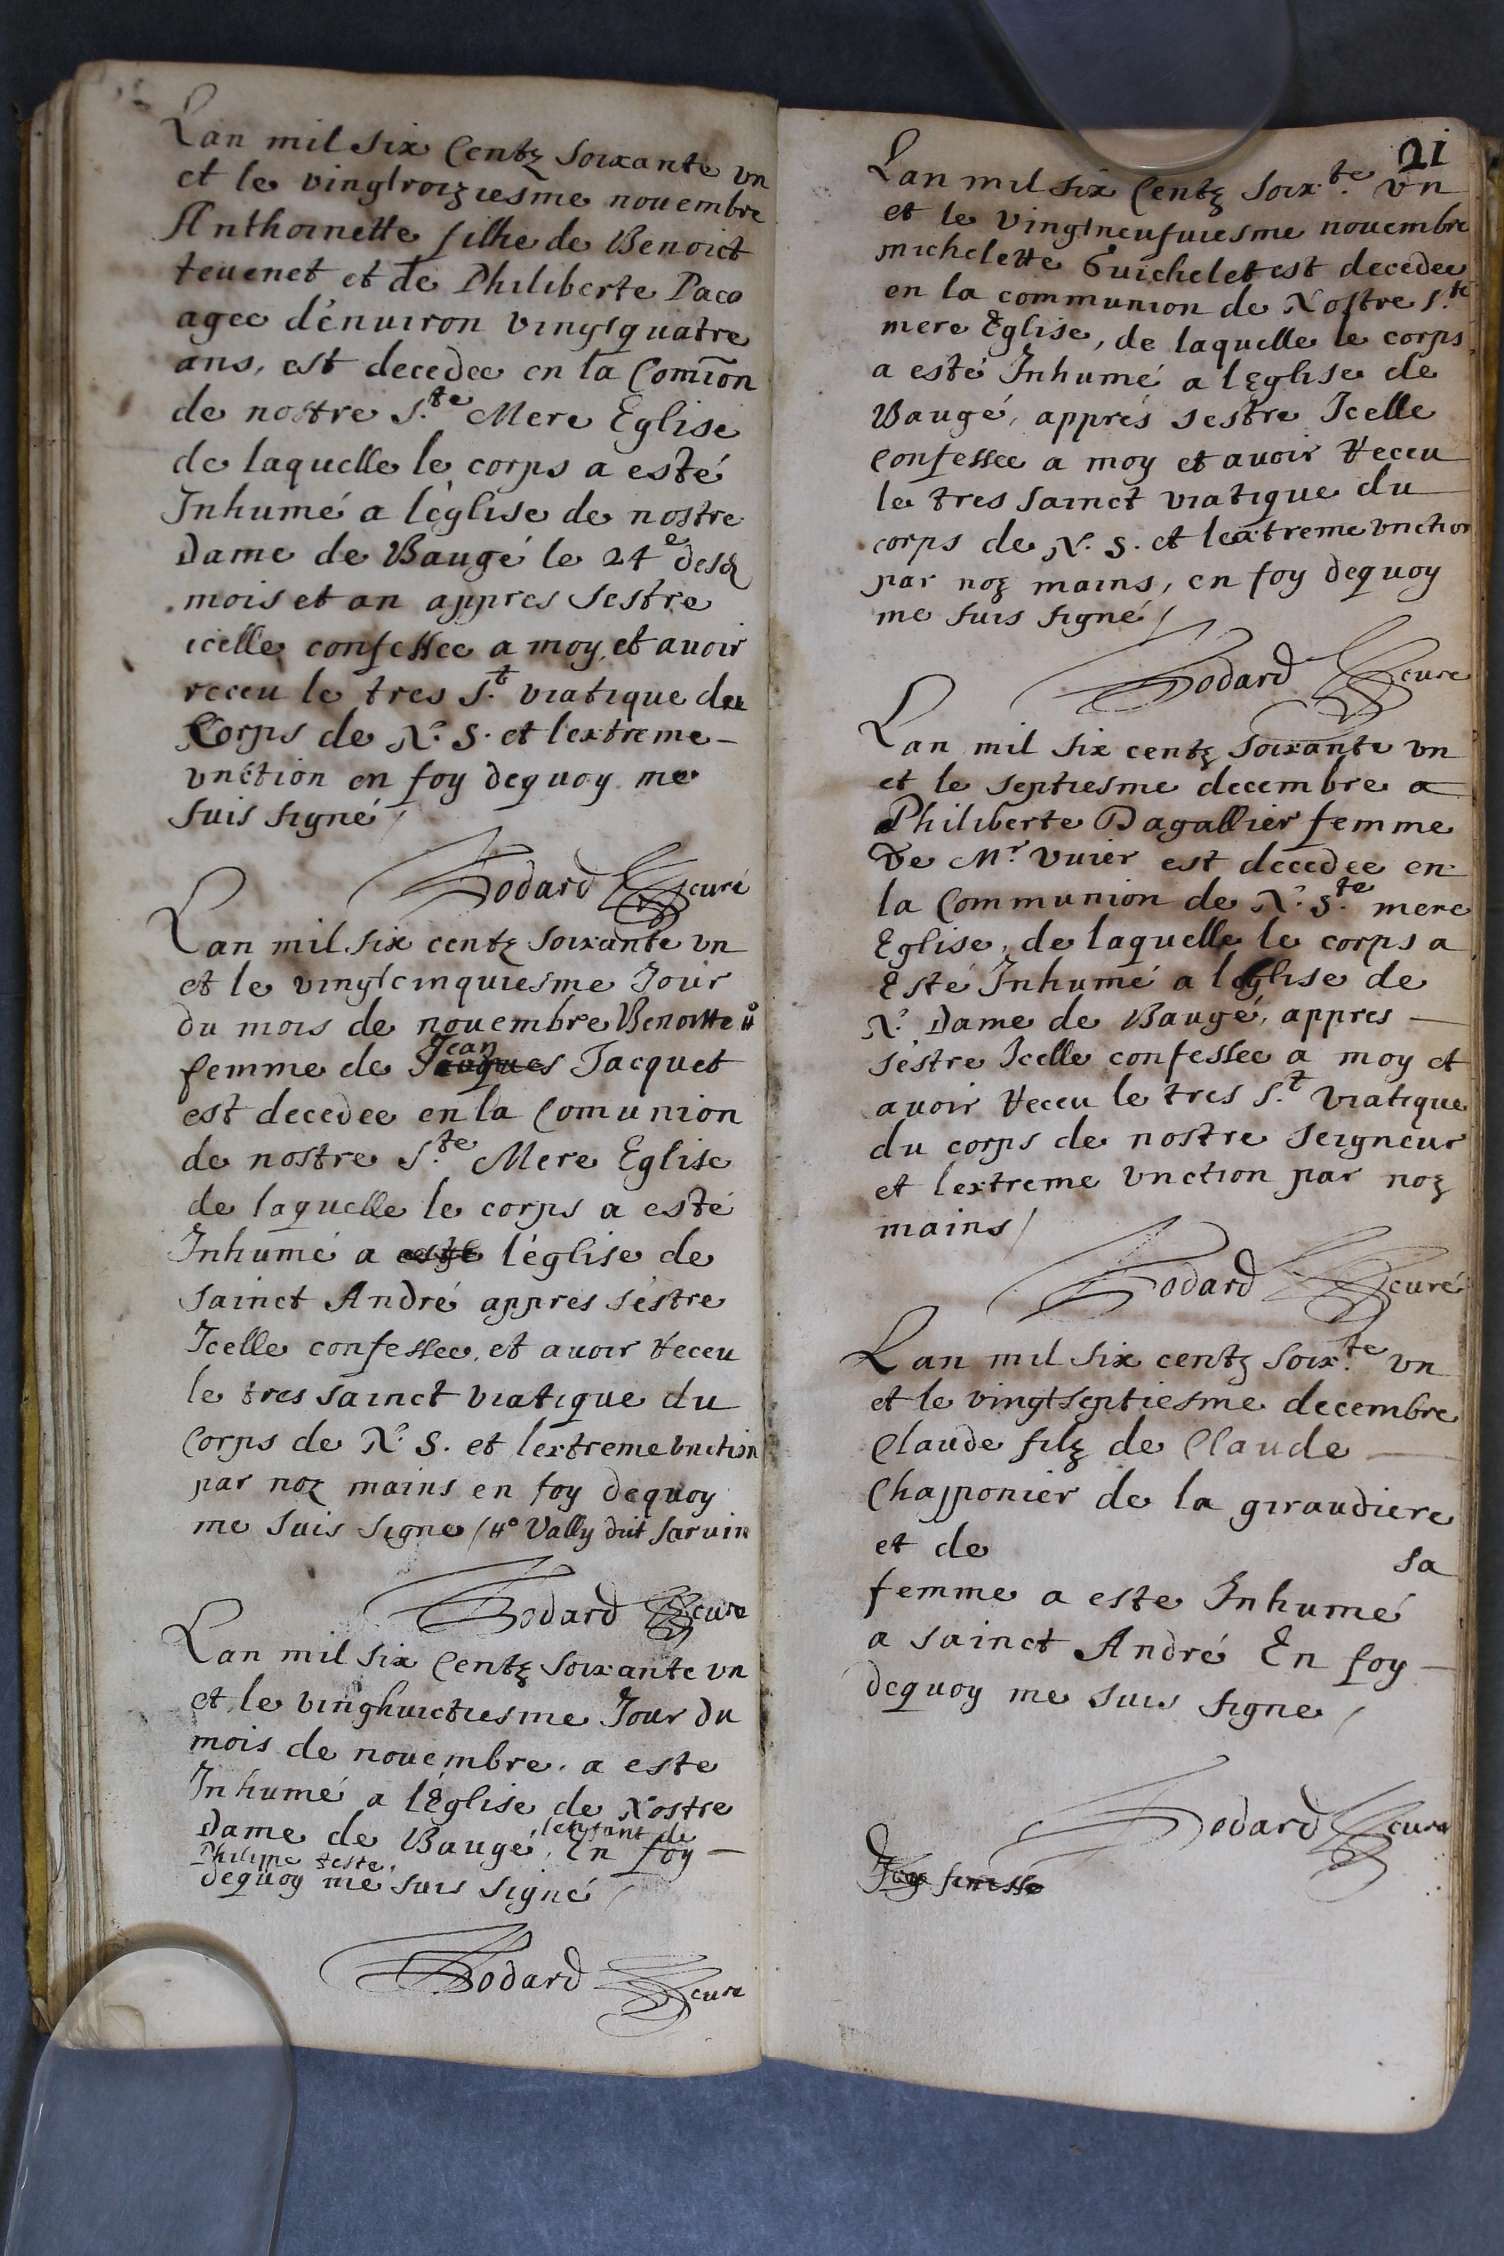 Lan mil six Centz soixante vn
et le vingtroiziesme nouembre
Anthoinette filhe de Benoict
teuenet et de Philiberte Paco
agee d'enuiron vingtquatre
ans, est decedee en la Comiõn
de nostre S.te Mere Eglise
de laquelle le corps a esté
Inhumé a l'église de nostre
Dame de Baugé le 24e desd
mois et an appres sestre
icelle confessee a moy, et avoir
receu le tres S.t viatique du
Corps de N.e S. et l'extreme -
vnction en foy dequoy me
suis signé /
Godard curé
Lan mil six centz soixante vn
et le vingtcinquiesme Jour
du mois de nouembre Benoitte #o
femme de Jean Jacquet
est decedee en la Comunion
de nostre S.te Mere Eglise
de laquelle le corps a esté
Inhumé a esté l'église de
sainct André appres s'éstre
Icelle confessee, et avoir receu
le tres sainct viatique du
Corps de N.e S. et lextreme vnction
par noz mains en foy dequoy
me suis signe / #o Vally dit Jarvin
Godard cure
Lan mil six Centz soixante vn
et le vinghuictiesme Jour du
mois de nouembre, a este
Inhumé a l'église de Nostre
Dame de Baugé, lenfant de
Philippe teste, En foy -
dequoy me suis signé /
Godard cure
21
Lan mil six Centz Soix.te vn
et le vingtneufuiesme nouembre
michelette Guichelet est decedee
en la communion de Nostre S.te
mere Eglise, de laquelle le corps
a esté Inhumé a lEglise de
Baugé, apprés sestre Icelle
Confessee a moy et avoir receu
le tres sainct viatique du
corps de N. S. et lextreme vnction
par noz mains, en foy dequoy
me suis signé /
Godard cure
Lan mil six centz soixante vn
et le septiesme decembre a
Philiberte Dagallier femme
De Mr. vuier est decedee en
la Communion de N.e S.te mere
Eglise, de laquelle le corps a
Esté Inhumé a leglise de
N.e Dame de Baugé, appres -
s'éstre Icelle confessee a moy et
avoir receu le tres S.t viatique
du corps de nostre seigneur
et lextreme vnction par noz
mains /
Godard curé
Lan mil six centz soix.te vn
et le vingtseptiesme decembre
Claude filz de Claude -
Chapponier de la giraudiere
et de sa
femme a este Inhumé
a sainct André En foy -
dequoy me suis signe /
Godard cure